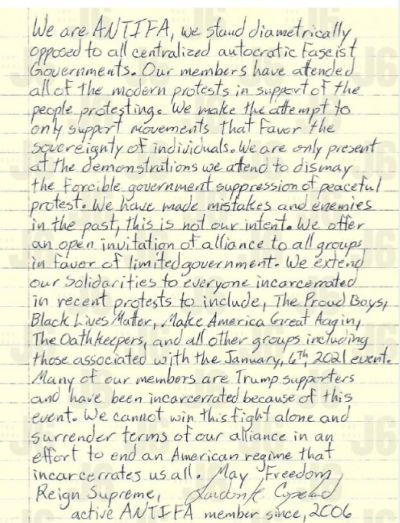 We are ANTIFA, we stand diametrically
opposed to all centralized autocratic Fascist
Governments. Our members have attended
all of the modern protests in support of the
people protesting. We make the attempt to
only support movements that favor the
sovereignty of individuals. We are only present
at the demonstrations we attend to dismay
the forcible government suppression of peaceful
protest. We have made mistakes and enemies
in the past, this is not our intent. We offer
an open invitation of alliance to all groups
in favor of limited government. We extend
our Solidarities to everyone incarcerrated
in recent protests to include, The Proud Boys,
Black Lives Mater, Make America Great Again,
The Oathkeepers, and all other groups including
those associated with the January, 6th, 2021 event.
Many of our members are Trump supporters
and have been incarcerrated because of this
event. We cannot win this fight alone and
surrender terms of our alliance in an
effort to end an American regime that
incarcerrates us all. May Freedom
Reign Supreme,
active ANTIFA member since, 2006
J6